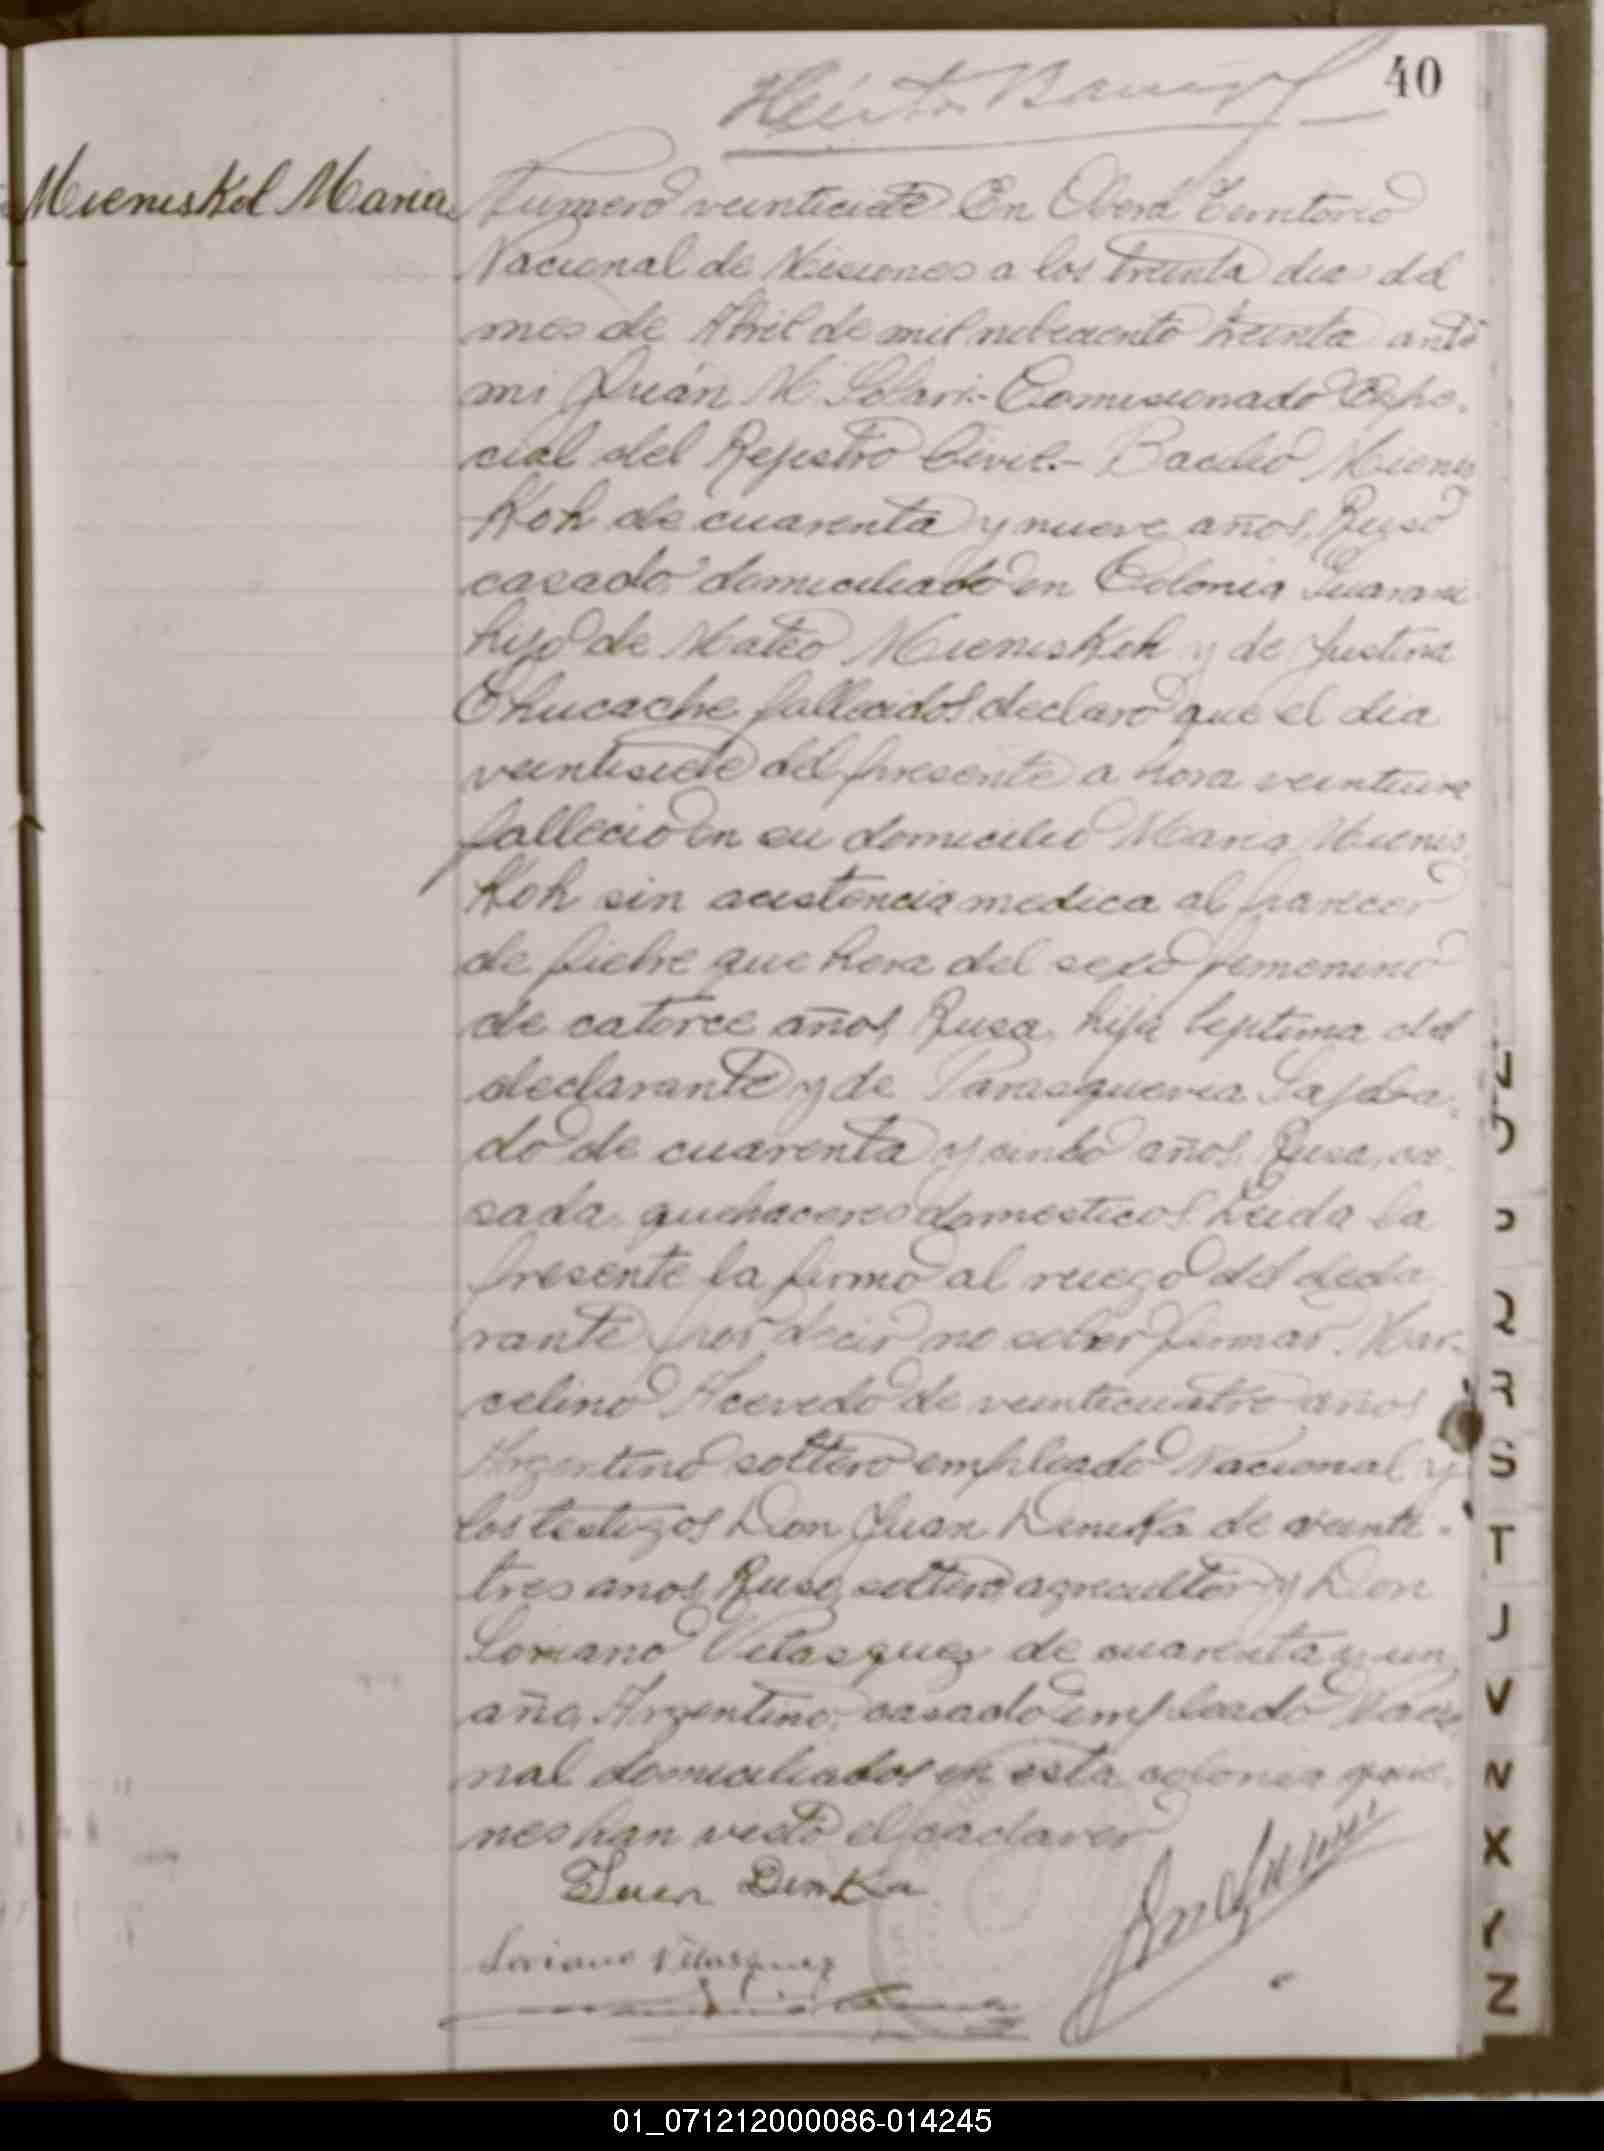 40
Mieniskol Maria
Numero veinticiete En Oberá Territorio
Nacional de Misiones a los treinta dias del
mes de Abril de mil nobeciento treinta ante
mi Juán M. Solari.- Comisionado Espe-
cial del Rejistro Civil.- Bacilio Mienis
Koh de cuarenta y nueve años, Ruso
casado domiciliado en Colonia Guarani
hijo de Mateo Mieniskoh y de Justina
Chucache fallecidos declaró que el dia
veintisiete del presente a hora veintiuna
fallecio en su domicilio Maria Mienis
Koh sin acistencia medica al parecer
de fiebre que hera del sexo femenino
de catorce años, Rusa, hija septima del
declarante y de Parasqueria
do de cuarenta y cinco años, Rusa, ca-
sada, quehaceres domesticos Leida la
presente la firmo al ruego del decla
rante por decir no saber firmar. Mar-
celino Acevedo de veinticuatro años
Argentino soltero empleado Nacional y
los testigos Don Juan Deniska de veinti-
tres anos Ruso, soltero agricultor y Don
Loriano Velasquez de cuarenta y un
año, Argentino, casado empleado Nacio
nal domiciliados en esta colonia quie-
nes han visto el cadaver
Juan Demka
Loriano Velasquez
P
Q
R
S
T
J
V
N
X
Y
Z
01_071212000086-014245